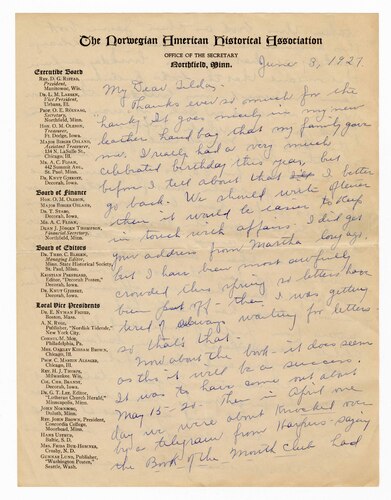 The Norwegian American Historical Association
OFFICE OF THE SECRETARY
Northfield, Minn.
June 3, 1927
Executive Board
REV. D. G. RISTAD,
President,
Manitowoc, Wis.
DR. L. M. LARSEN,
Vice President,
Urbana, Ill.
PROF. O. E. RÖLVAAG,
Secretary,
Northfield, Minn.
HON. O. M. OLESON,
Treasurer,
Ft. Dodge, Iowa.
MAJOR BIRGER OSLAND,
Assistant Treasurer,
134 N. LaSalle St.,
Chicago, Ill.
MR. A. C. FLOAN,
442 Summit Ave.,
St. Paul, Minn.
DR. KNUT GJERSET,
Decorah, Iowa.
Board of Finance
HON. O. M. OLESON,
MAJOR BIRGER OSLAND,
DR. T. STABO,
Decorah, Iowa.
MR. A. C. FLOAN,
OLAN J. JÖRGEN THOMPSON,
Financial Secretary,
Northfield, Minn.
Board of Editors
DR. THEO. C. BLEGEN,
Managing Editor,
Minn. State Historical Society,
St. Paul, Minn.
KRISTIAN PRESTGARD,
Editor, "Decorah Posten,"
Decorah, Iowa.
DR. KNUT GJERSET,
Decorah, Iowa.
Local Vice Presidents
Boston, Mass.
A. N. RYGG,
Publisher, "Nordisk Tidende,"
New York City.
Philadelphia, Pa.
MRS. OAKLEY KISSAM BROWN,
Chicago, Ill.
Chicago, Ill.
REV. H. J. THORPE,
Milwaukee, Wis.
COL. CHR. BRANDT,
Decorah, Iowa.
DR. G. T. LEE, Editor,
"Lutheran Church Herald,"
Minneapolis, Minn.
JOHN NORDBERG,
Duluth, Minn.
REV. JOHN BROWN, President,
Concordia College,
Moorhead, Minn.
Baltic, S. D.
MRS. FRIDA BUE-HOMNES,
Crosby, N. D.
GUNNAR LUND, Publisher,
"Washington Posten,"
Seattle, Wash.
My Dear Tilda,
Thanks ever so much for the
"hanky." It goes nicely in my new
leather hand bag that my family gave
me. I really had a very much
celebrated birthday this year, but
before I tell about that I better
go back. We should write oftener
then it would be easier to keep
in touch with affairs. I did get
your address from Martha long ago,
but I have been most awfully
crowded this spring so letters have
been put off - then I was getting
tired of always waiting for letters
so that's that.
Now about the book - it does seem
as tho it will be a success.
It was to have come out about
May 15 - 20 - then in April one
day we were about knocked over
by a telegram from Harpers - saying
the Book of the Month Club had